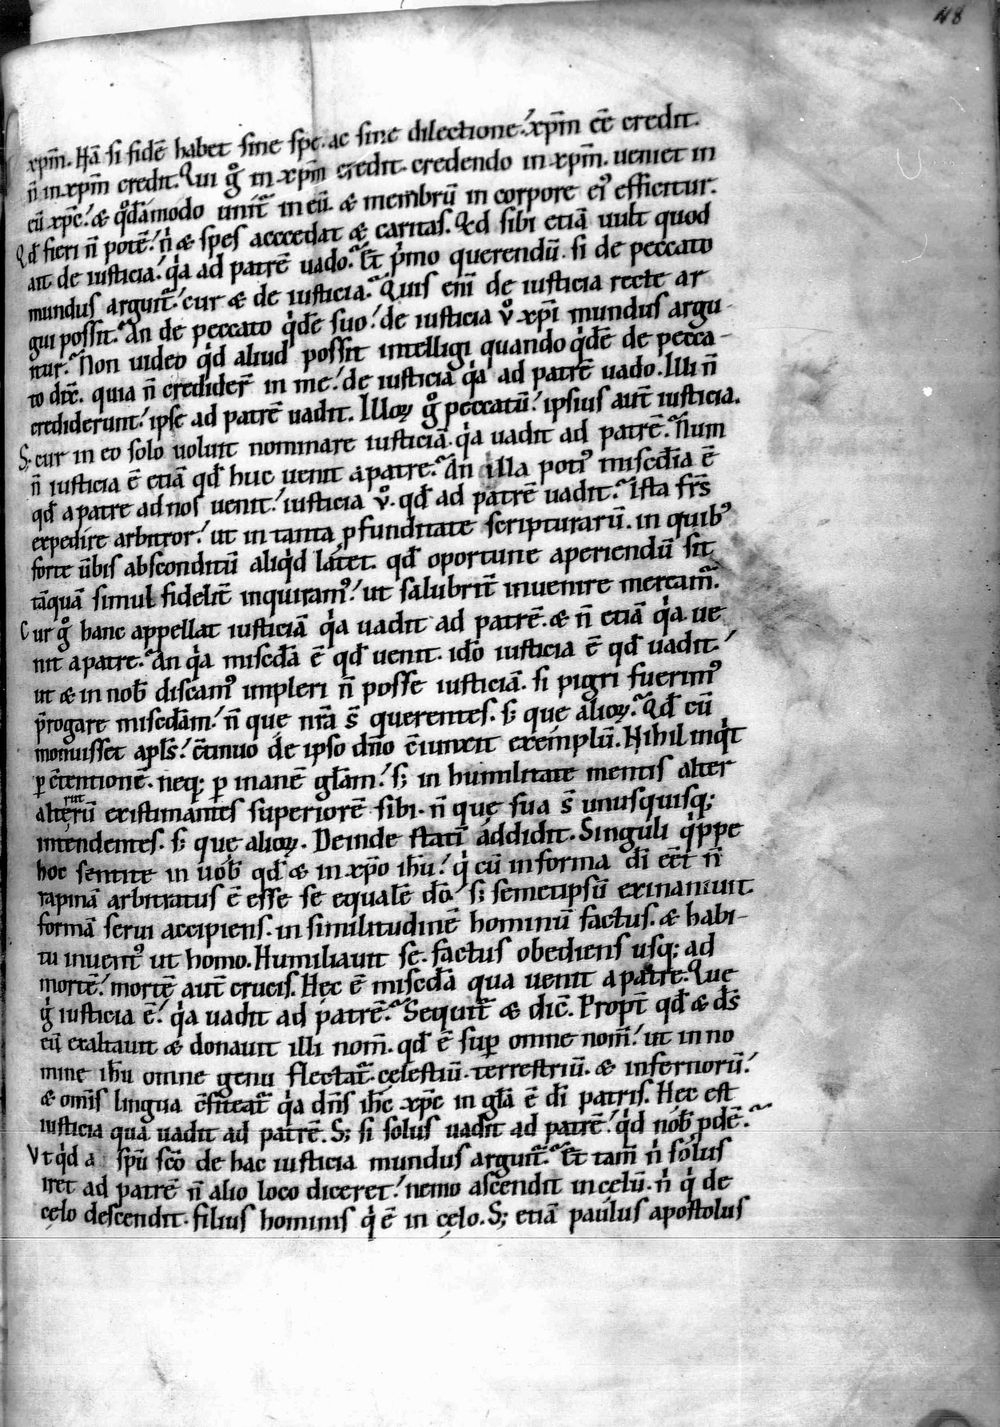 48
xp̄m. Nā si fidē habet sine spe. ac sine dilectione. xp̄m eē credit.
n̄ in xp̄m credit. Qui g̊ in xp̄m credit. credendo in xp̄m. ueniet in
eū xp̄c. & q°dāmodo unit̄ in eū. & membrū in corpore ei᾿ efficitur.
Qđ fieri n̄ potē. n̄ & spes accedat & caritas. Qd sibi etiā uult quod
ait de iusticia. q̓a ad patrē uado. Et p̓mo querendū. si de peccato
mundus arguit̄. cur & de iusticia. Quis eni̅ de iusticia recte ar
gui possit. An de peccato q̓dē suo. de iusticia v̊ xpi̅ mundus argu
itur. Non uideo q̓d aliud possit intelligi quando q̓dē de pecca-
to dix̄. quia n̄ credider̄ in me. de iusticia q̓a ad patrē uado. Illi n̄
crediderunt. ipse ad patrē uadit. Illoꝝ g̊ peccatū. ipsius aut̄ iusticia.
S; cur in eo solo uoluit nominare iusticiā. q̓a uadit ad patrē. Num
n̄ iusticia ē etiā qđ huc uenit a patre. An illa poti᾿ mis̄cdia ē
qđ a patre ad nos uenit. iusticia v̊. qđ ad patrē uadit. Ista fr̄s
expedire arbitror. ut in tanta ꝓfunditate scripturarū. in quib᾿
forte ūbis absconditū aliq̓d latet. qđ oportune aperiendū sit
tāquā simul fidelit̄ inquiram᾿. ut salubrit̄ inuenire meream̄.
Cur g̊ hanc appellat iusticiā q̓a uadit ad patrē. & n̄ etiā q̓a ue
nit a patre. An q̓a mis̄cdā ē qđ uenit. ido̅ iusticia ē qđ uadit.
ut & in nob̄ discam᾿ impleri n̄ posse iusticiā. si pigri fuerim᾿
p̓rogare mis̄cdām. n̄ que nr̄a s̄ querentes. s; que alioꝝ. Qđ cū
monuisset apl̄s. c̄tinuo de ipso dn̄o c̄iunxit exemplū. Nihil inq̓t
ꝑ c̄tentionē. neq; ꝑ inanē gl̄am. s; in humilitate mentis alter
alterū existimantes superiorē sibi. n̄ que sua s̄ unusquisq;
intendentes. s; que alioꝝ. Deinde stati̅ addidit. Singuli q̓ppe
hoc sentite in uob̄ qđ & in xp̄o ih̄u. q̓ cū in forma di̅ eēt n̄
rapinā arbitratus ē esse se equalē dō. s; semetipsū exinaniuit
formā serui accipiens. in similitudinē hominū factus. & habi-
tu inuent᾿ ut homo. Humiliauit se. factus obediens usq; ad
mortē. mortē aut̄ crucis. Hęc ē mis̄cdā qua uenit a patre. Que
g̓ iusticia ē. q̓a uadit ad patrē. Sequit̄ & dic̄. Propt̄ qđ & ds̄
eū exaltauit & donauit illi nom̄. qđ ē suꝑ omne nom̄. ut in no
mine ih̄u omne genu flectat̄. celestiū. terrestriū. & infernorū.
& omīs lingua c̄fiteat̄ q̓a dn̄s ih̄c xp̄c in glā ē di̅ patris. Hec est
iusticia qua uadit ad patrē. S; si solus uadit ad patrē. q̓d nob̄ ꝓdē.
Ut q̓d a spū scō de hac iusticia mundus arguit̄. Et tam̄ n̓ solus
iret ad patrē n̄ alio loco diceret. nemo ascendit in celū. n̓ q̓ de
cęlo descendit. filius hominis q̓ ē in cęlo. S; etiā paulus apostolus